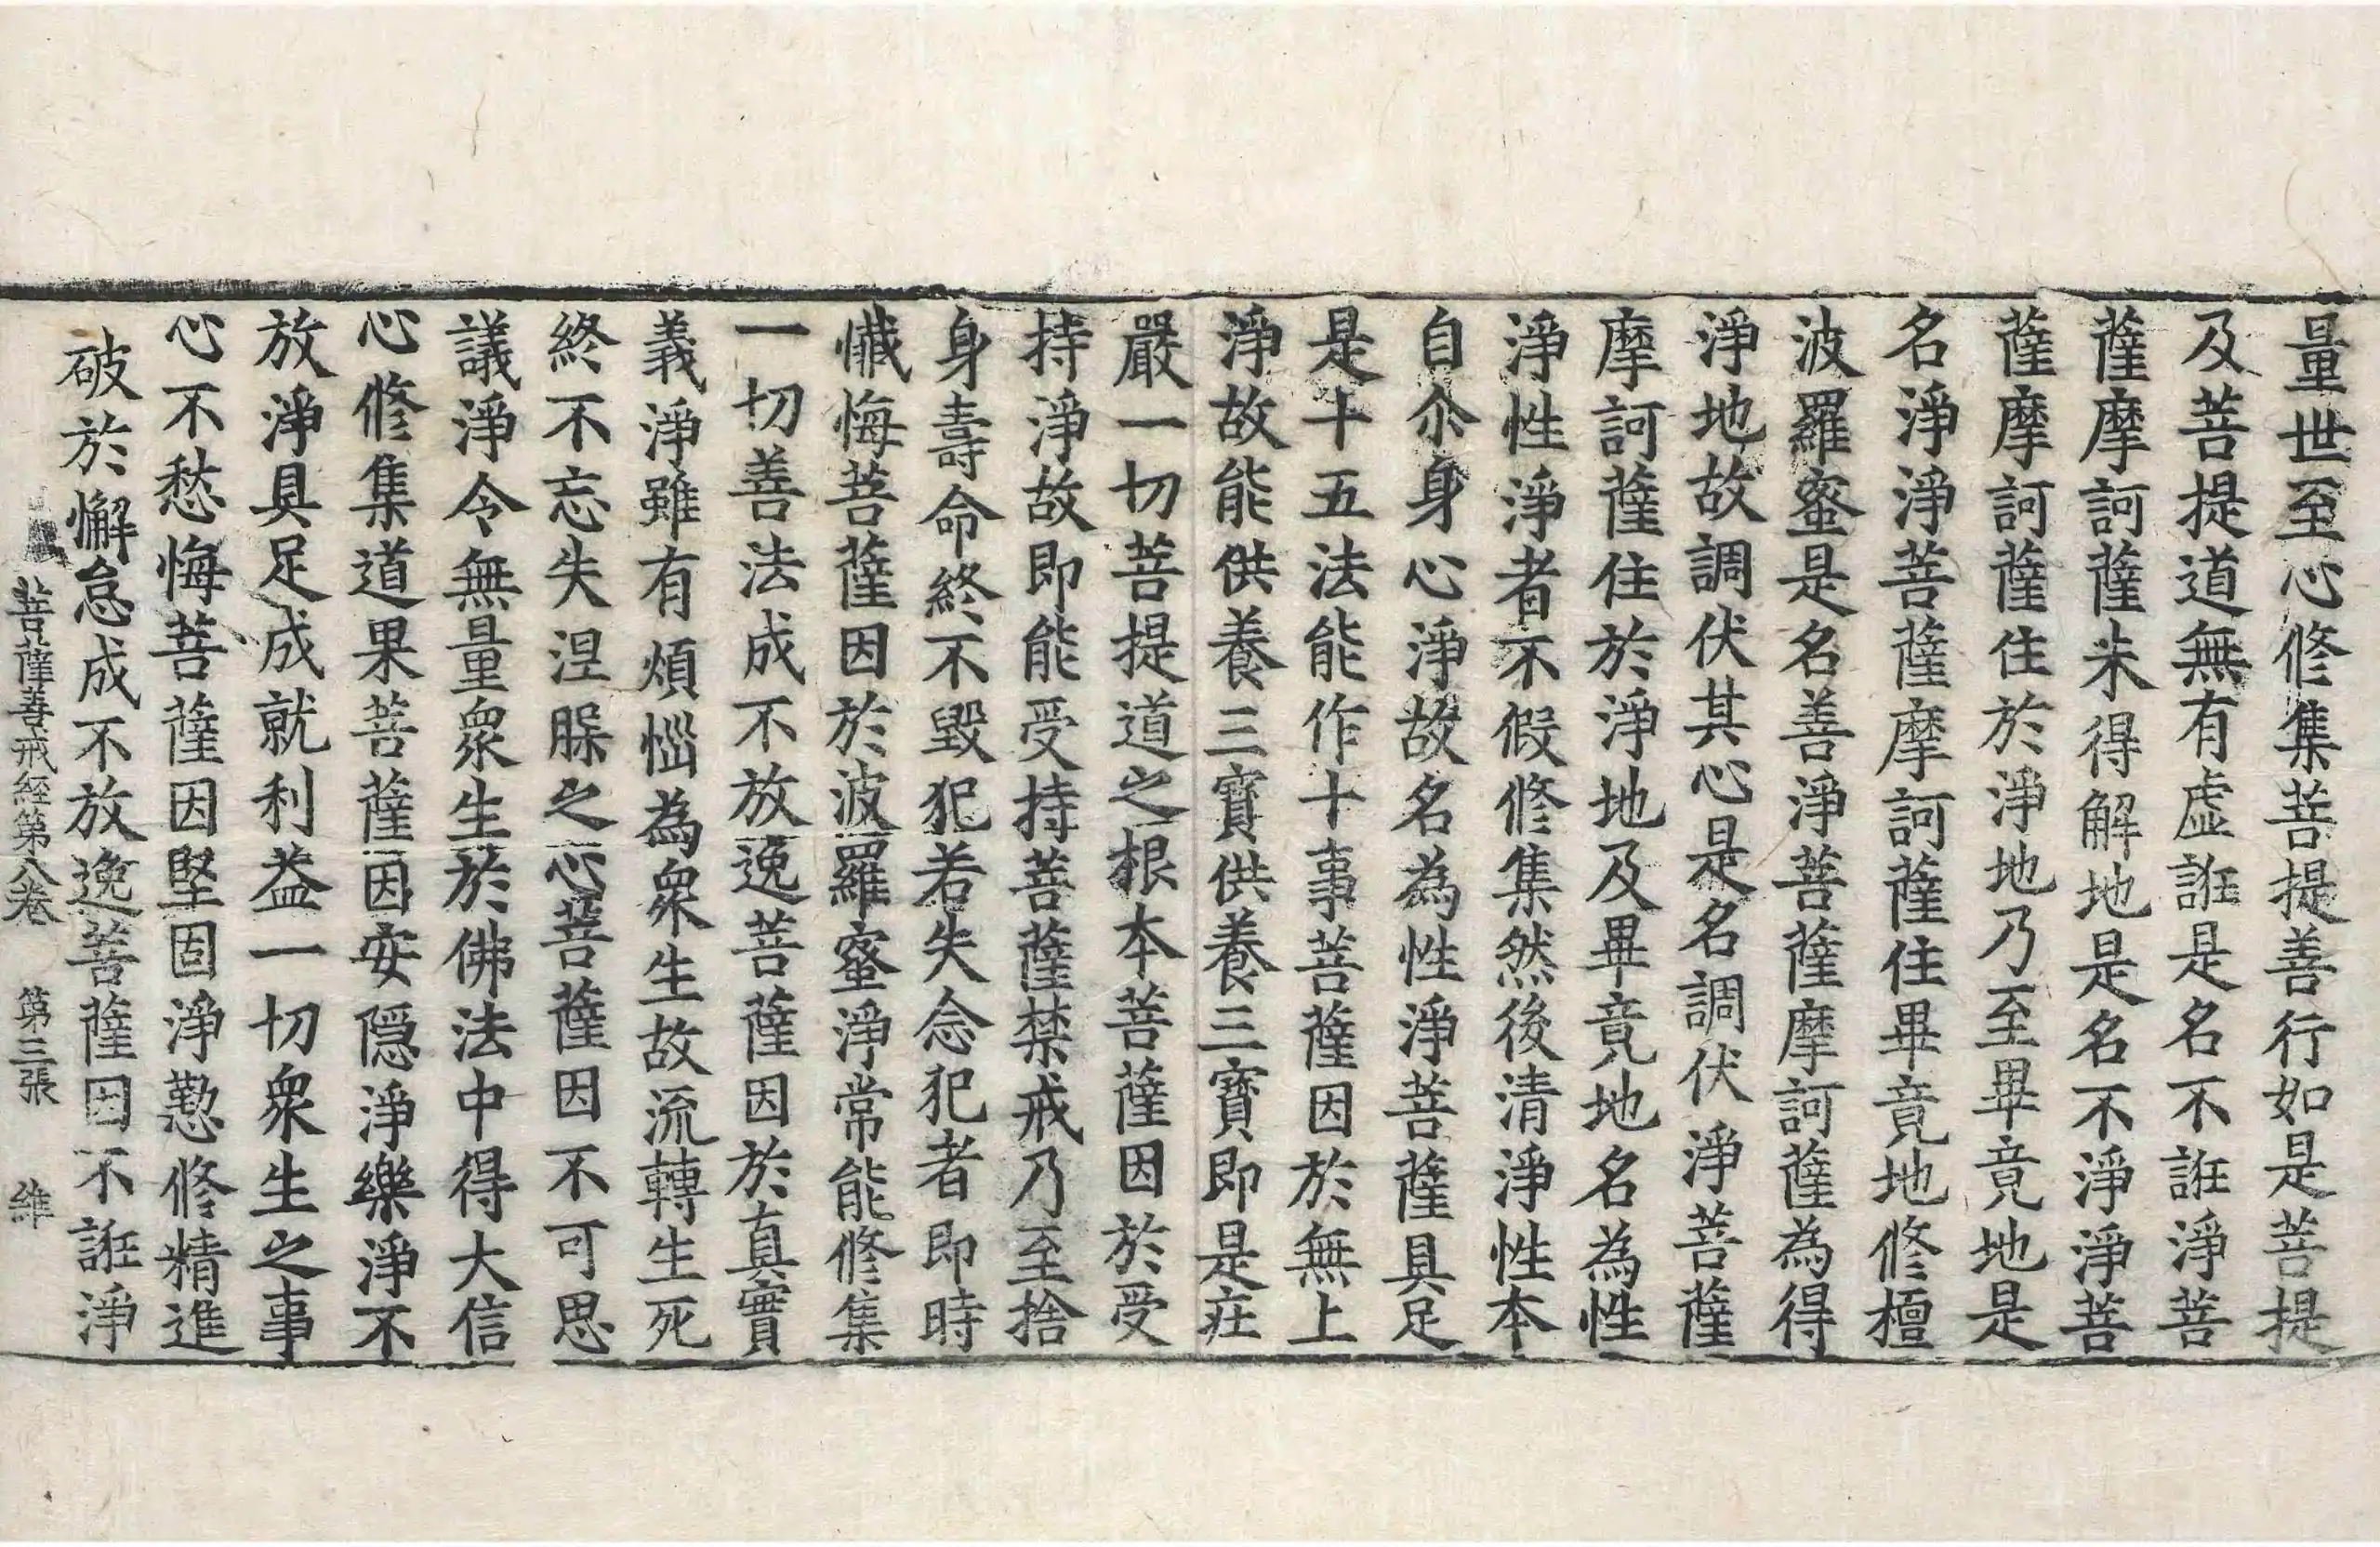 量世至心修集菩提善行如是菩提
及菩提道無有虛誑是名不誑淨菩
薩摩訶薩未得解地是名不淨淨菩
薩摩訶薩住於淨地乃至畢竟地是
名淨淨菩薩摩訶薩住畢竟地修檀
波羅蜜是名善淨菩薩摩訶薩為得
淨地故調伏其心是名調伏淨菩薩
摩訶薩住於淨地及畢竟地名為性
淨性淨者不假修集然後清淨性本
自尒身心淨故名為性淨菩薩具足
是十五法能作十事菩薩因於無上
淨故能供養三寶供養三寶即是庄
嚴一切菩提道之根本菩薩因於受
持淨故即能受持菩薩禁戒乃至捨
身壽命終不毀犯若失念犯者即時
懺悔菩薩因於波羅蜜淨常能修集
一切善法成不放逸菩薩因於真實
義淨雖有煩惱為衆生故流轉生死
終不忘失涅槃之心菩薩因不可思
議淨令無量衆生於佛法中得大信
心修集道果菩薩因安隱淨樂淨不
放淨具足成就利益一切衆生之事
心不愁悔菩薩因堅固淨懃修精進
破於懈怠成不放逸菩薩因不誑淨
菩薩善戒經第八卷 第三張 維